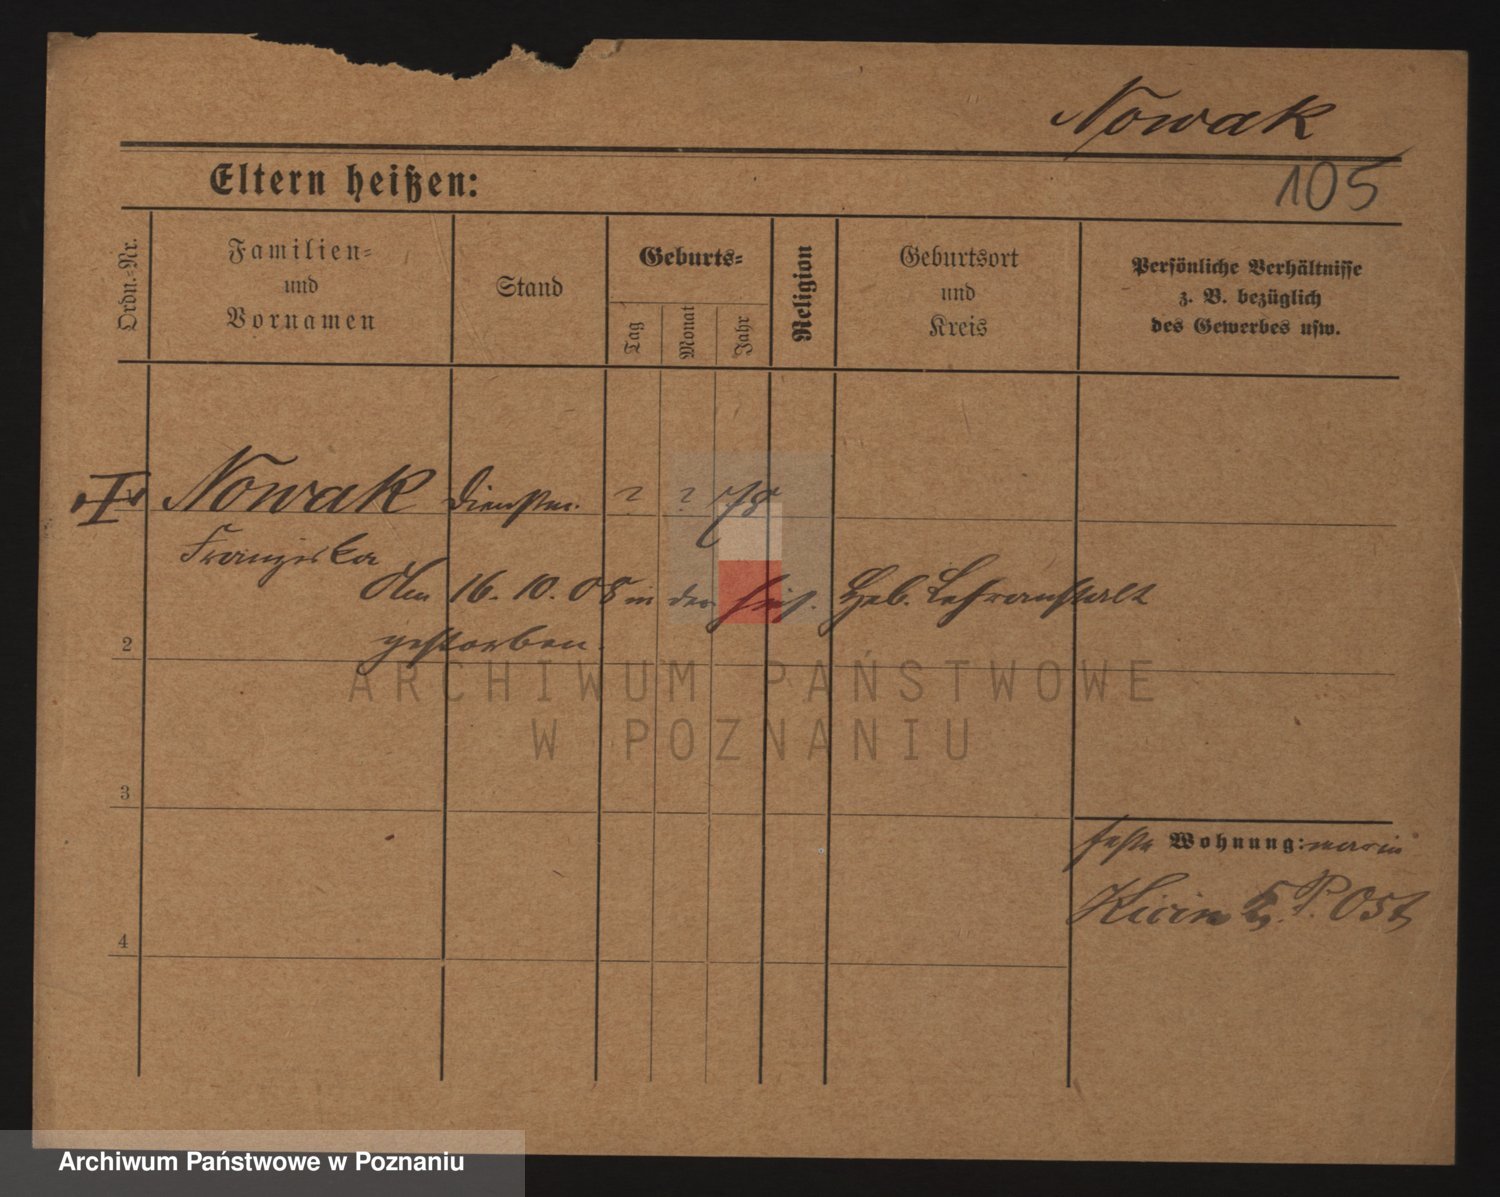 Nowak
105
Eltern heißen:
Ordn.-Nr.
Familien-
und
Vornamen
Stand
Geburts-
Tag
Monat
Jahr
Religion
Geburtsort
und
Kreis
Persönliche Verhältnisse
z. B. bezüglich
des Gewerbes usw.
Nowak ? ? 78
Franziska
Am 16. 10. 08 in der Heb. Lehranstalt
gestorben.
2
3
4
Wohnung:
P. Ost
ARCHIWUM PAŃSTWOWE
W POZNANIU
Archiwum Państwowe w Poznaniu